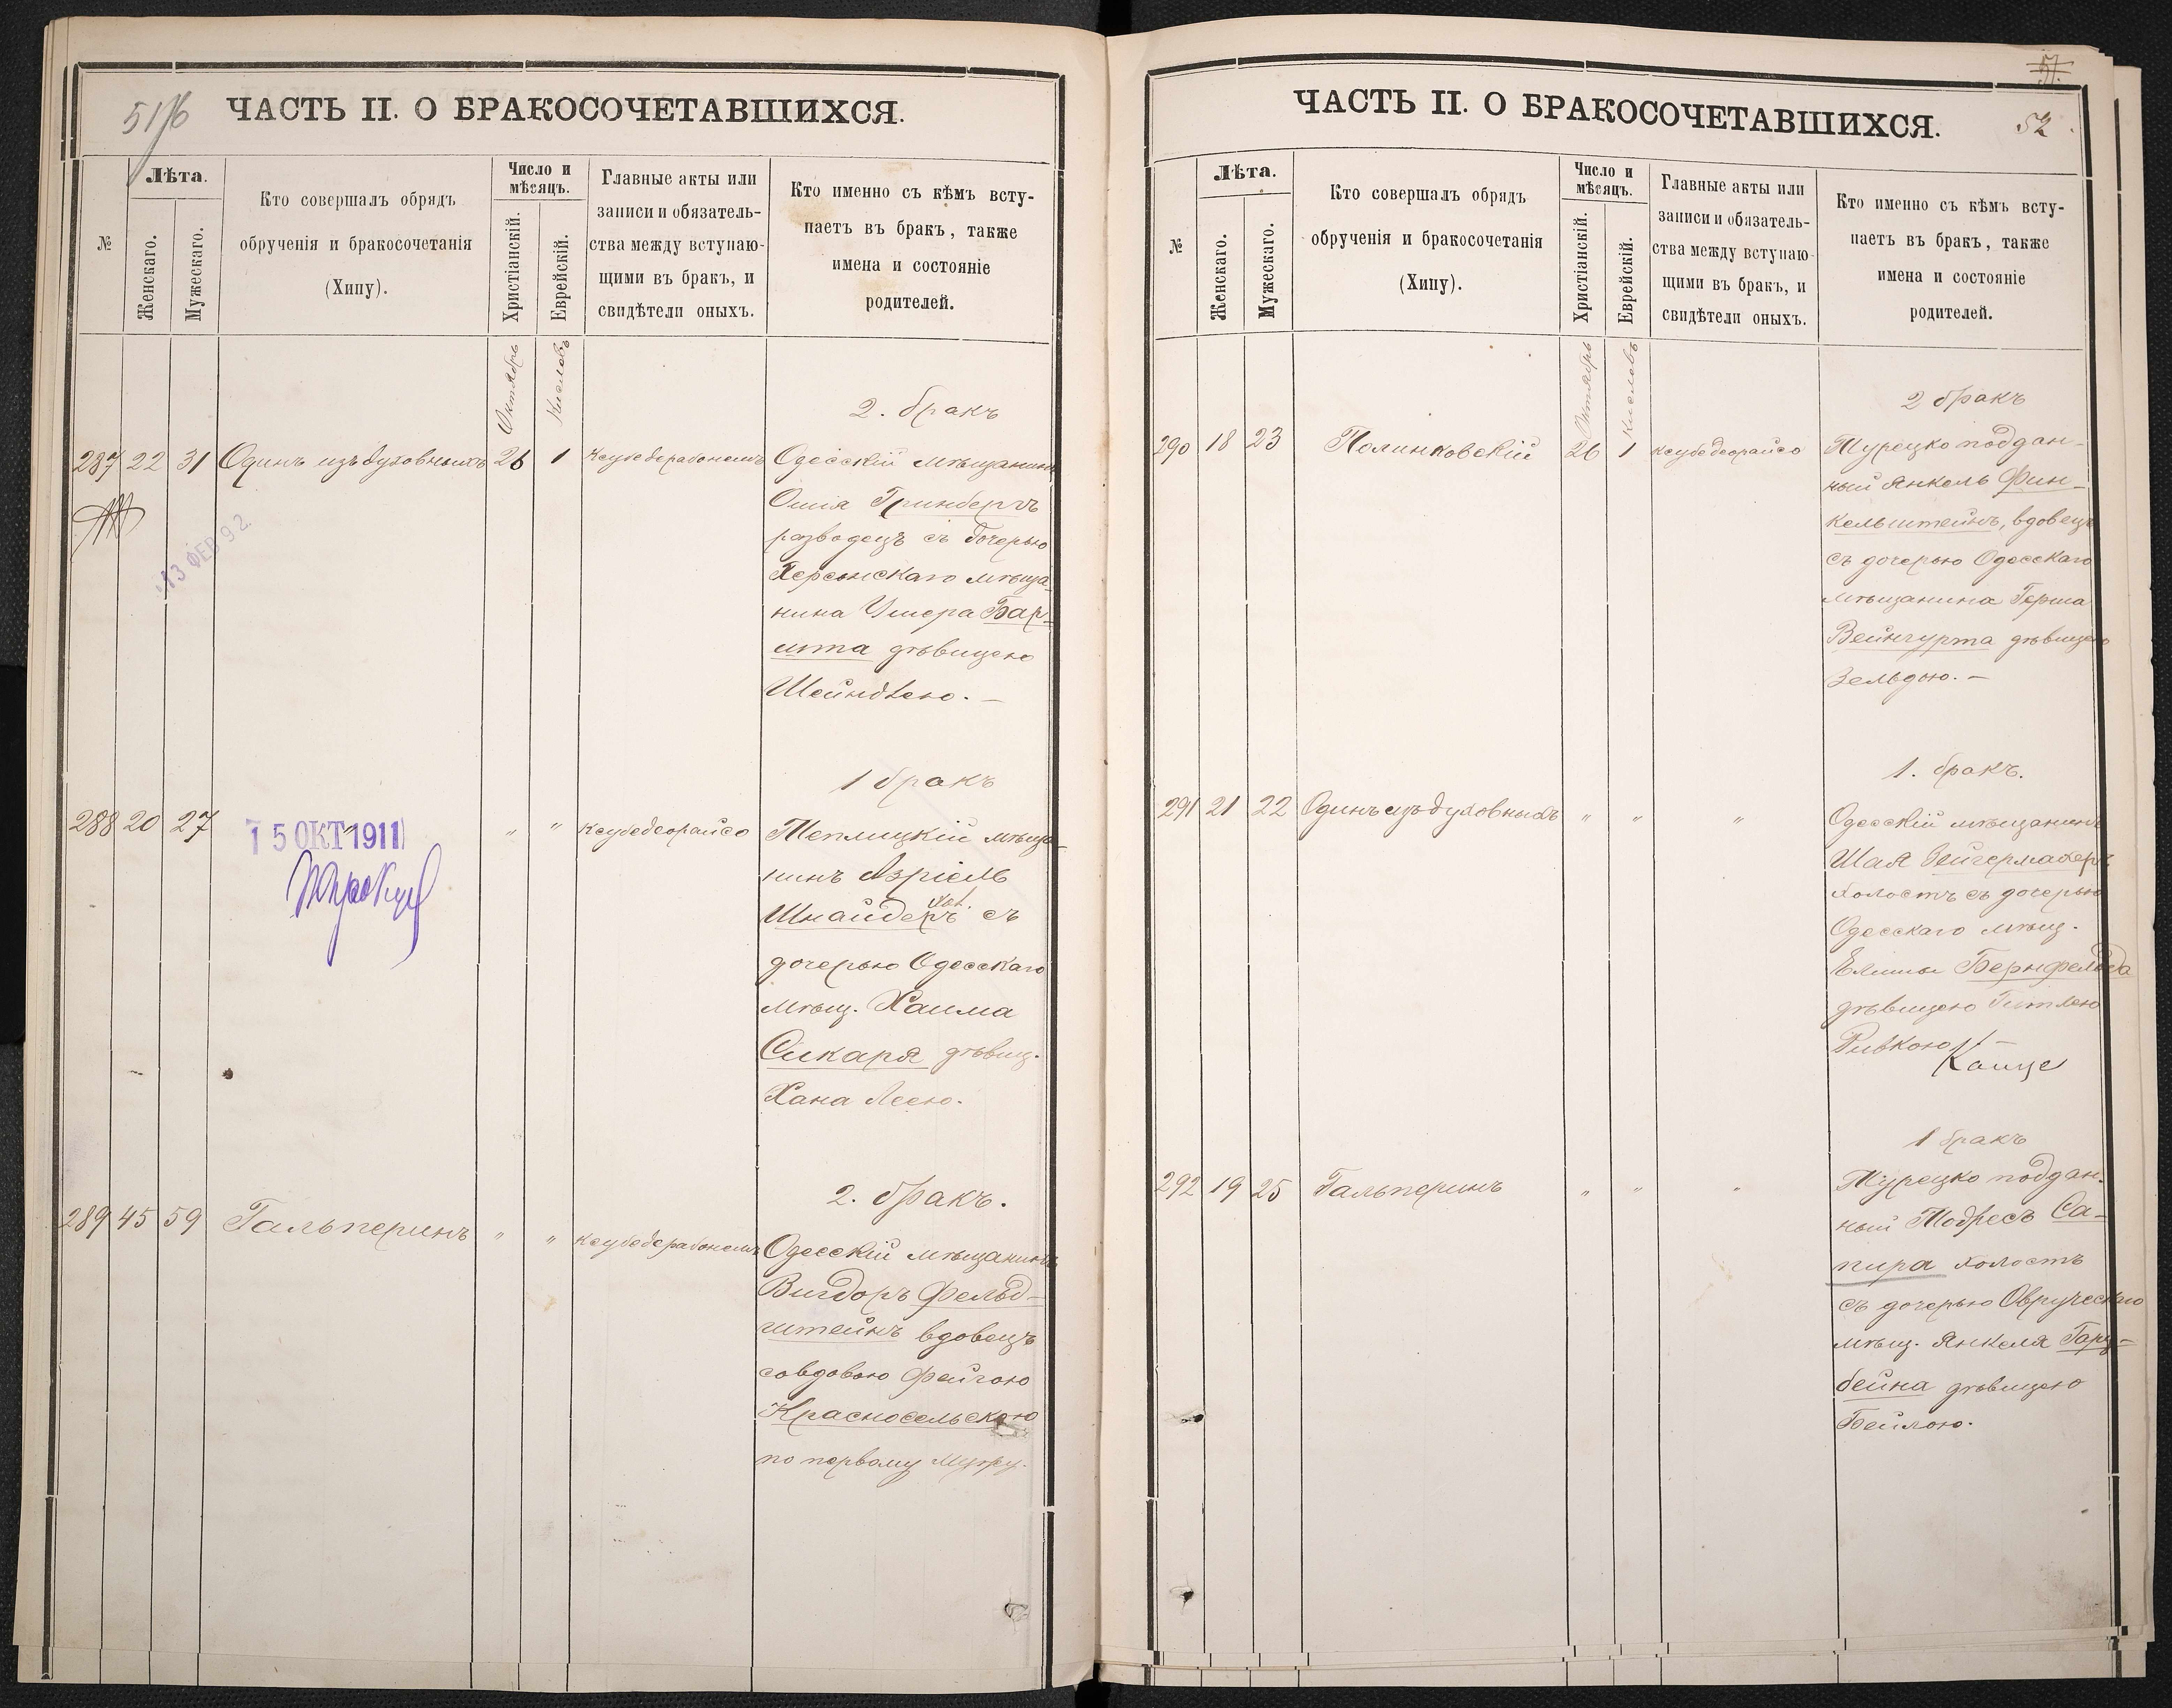 51об
ЧАСТЬ II. О БРАКОСОЧЕТАВШИХСЯ.
№
Лѣта.
Женскаго.
Мужескаго.
Кто совершалъ обрядъ
обрученія и бракосочетанія
(Хипу).
Число и
мѣсяцъ.
Христіанскій.
Еврейскій.
Главные акты или
записи и обязатель-
ства между вступаю-
щими въ бракъ, и
свидѣтели оныхъ.
Кто именно съ кѣмъ всту-
паетъ въ бракъ, также
имена и состояніе
родителей.
Октябрь
Кислевъ
2. бракъ
287 22 31 Одинъ изъ духовныхъ 26 1 Одесскій мѣщанинъ
Гринбергъ
разводецъ съ дочерью
Херсонскаго мѣща-
нина Умера Бар-
шта дѣвицею
Шейндлею. –
13 ФЕВ 92
1 бракъ
288 20 27 " " Ксубедеорайсо Теплицкій мѣща-
нинъ Азріель
Шнайдеръ хол. съ
дочерью Одесскаго
мѣщ. Хаима
Сикаря дѣвиц.
Хана Леею.
15 ОКТ 1911
2. бракъ.
289 45 59 Гальперинъ " " Одесскій мѣщанинъ
Вигдоръ Фельд-
штейнъ вдовецъ
совдовою Фейгою
Красносельскою
по первому мужу.
51.
52
ЧАСТЬ II. О БРАКОСОЧЕТАВШИХСЯ.
№
Лѣта.
Женскаго.
Мужескаго.
Кто совершалъ обрядъ
обрученія и бракосочетанія
(Хипу).
Число и
мѣсяцъ.
Христіанскій.
Еврейскій.
Главные акты или
записи и обязатель-
ства между вступаю-
щими въ бракъ, и
свидѣтели оныхъ.
Кто именно съ кѣмъ всту-
паетъ въ бракъ, также
имена и состояніе
родителей.
Октябрь
Кислевъ
2 бракъ
290 18 23 Полинковскій 26 1 Ксубедеорайсо Турецко поддан-
ный Янкель Фин-
кельштейнъ, вдовецъ
съ дочерью Одесскаго
мѣщанина Герша
Вейнгурта дѣвицею
Зельдою. –
1. бракъ.
291 21 22 Одинъ изъ духовныхъ " " " Одесскій мѣщанинъ
Шая Зейгермахеръ
холостъ съ дочерью
Одесскаго мѣщ.
Елишы Бернфельда
дѣвицею Гитлею
Ривкою –
1 бракъ
292 19 25 Гальперинъ " " " Турецко поддан-
ный Тодресъ Са-
пира холостъ
съ дочерью Овручскаго
мѣщ. Янкеля Гарц-
бейна дѣвицею
Бейлою.